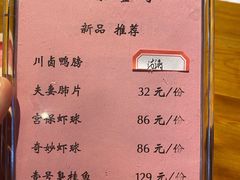 新品 推荐
川卤鸭膀
夫妻肺片 32 元/份
宫保虾球 86 元/份
奇妙虾球 86 元/份
香桂鱼 129 元/份